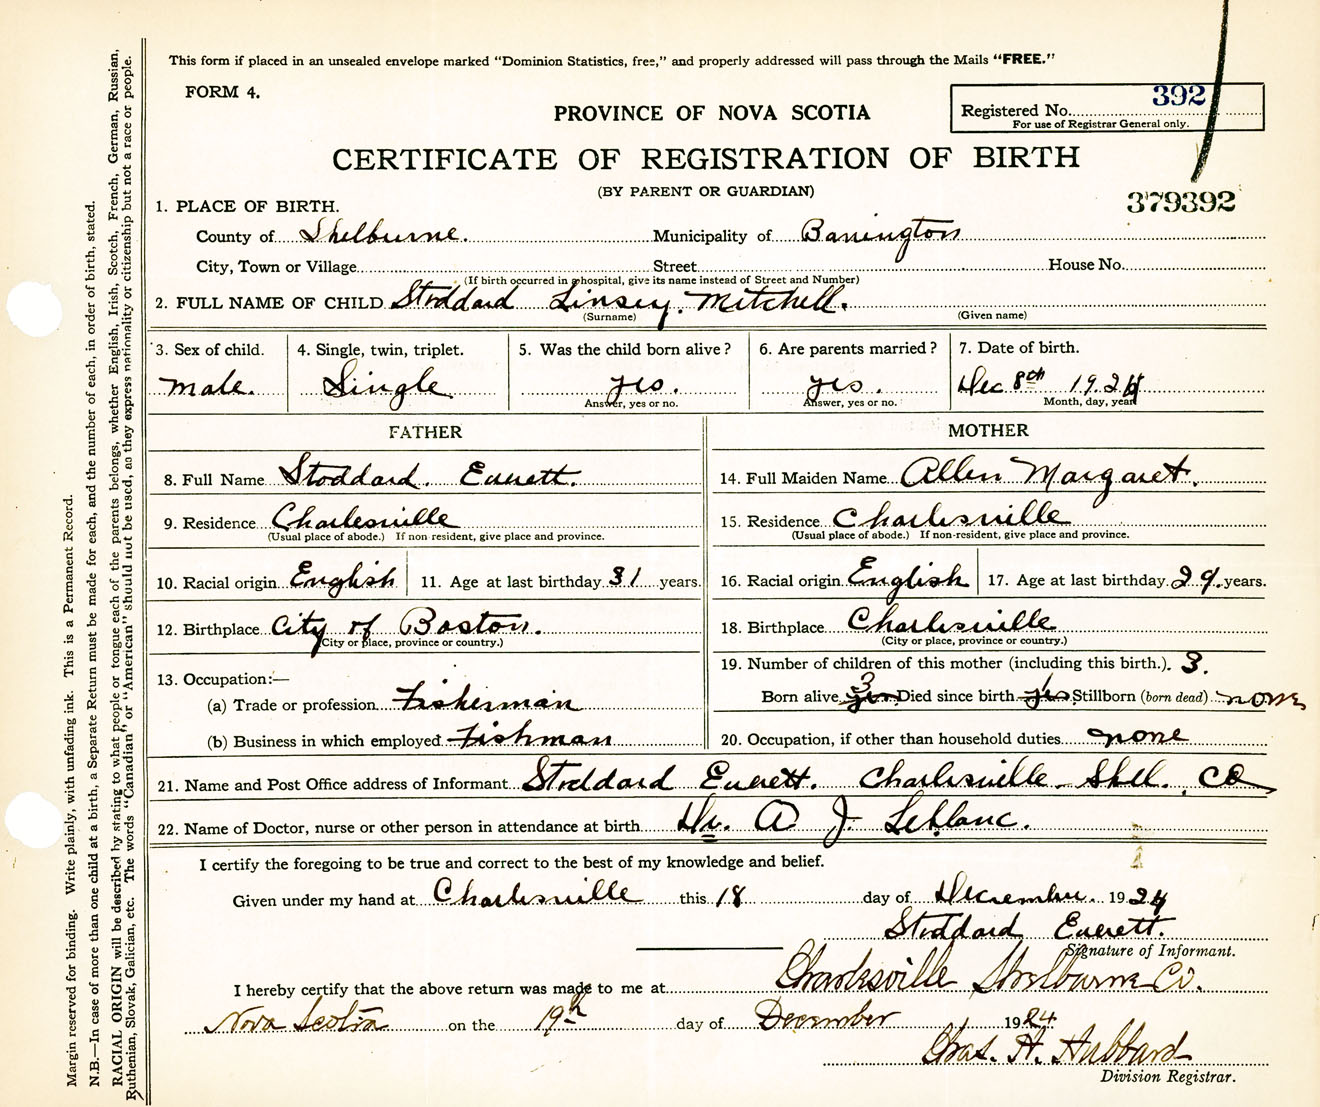 This form if placed in an unsealed envelope marked "Dominion Statistics, free," and properly addressed will pass through the Mails "FREE."
FORM 4.
PROVINCE OF NOVA SCOTIA
Registered No. 392
For use of Registrar General only.
CERTIFICATE OF REGISTRATION OF BIRTH
(BY PARENT OR GUARDIAN)
379392
1. PLACE OF BIRTH.
County of Shelburne. Municipality of Barrington
City, Town or Village Street House No.
(If birth occurred in a hospital, give its name instead of Street and Number)
2. FULL NAME OF CHILD Stoddard Linsey. Mitchell.
(Surname) (Given name)
3. Sex of child. 4. Single, twin, triplet. 5. Was the child born alive? 6. Are parents married? 7. Date of birth.
male. Single yes. yes. Dec 8th 1924
Answer, yes or no. Answer, yes or no. Month, day, year
FATHER MOTHER
8. Full Name Stoddard. Everett. 14. Full Maiden Name Allen Margaret.
9. Residence Charlesville 15. Residence Charlesville
(Usual place of abode.) If non-resident, give place and province. (Usual place of abode.) If non-resident, give place and province.
10. Racial origin English 11. Age at last birthday 31 years. 16. Racial origin English 17. Age at last birthday 29 years.
12. Birthplace City of Boston. 18. Birthplace Charlesville
(City or place, province or country.) (City or place, province or country.)
19. Number of children of this mother (including this birth.). 3.
13. Occupation:—
Born alive 3 yes Died since birth yes Stillborn (born dead) none
(a) Trade or profession Fisherman
(b) Business in which employed Fishman 20. Occupation, if other than household duties none
21. Name and Post Office address of Informant Stoddard Everett. Charlesville Shel. Co
22. Name of Doctor, nurse or other person in attendance at birth Dr. A J. Leblanc.
I certify the foregoing to be true and correct to the best of my knowledge and belief.
Given under my hand at Charlesville this 18 day of December. 1924
Stoddard Everett.
Signature of Informant.
I hereby certify that the above return was made to me at Charlesville Shelburne Co.
Nova Scotia on the 19th day of December 1924.
Chas. H. Hubbard
Division Registrar.
Margin reserved for binding. Write plainly, with unfading ink. This is a Permanent Record.
N.B.—In case of more than one child at a birth, a Separate Return must be made for each, and the number of each, in order of birth, stated.
RACIAL ORIGIN will be described by stating to what people or tongue each of the parents belongs, whether English, Irish, Scotch, French, German, Russian,
Ruthenian, Slovak, Galician, etc. The words "Canadian" or "American" should not be used, as they express nationality or citizenship but not a race or people.